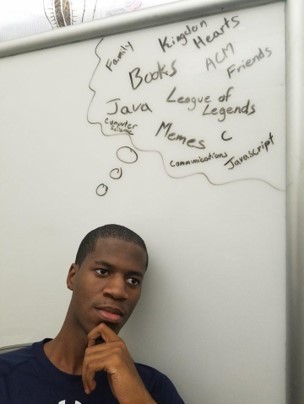 Family
Kingdom
Hearts
Books
ACM
Friends
Java
League of
Legends
Computer
Science
Memes
C
Communications
Javascript